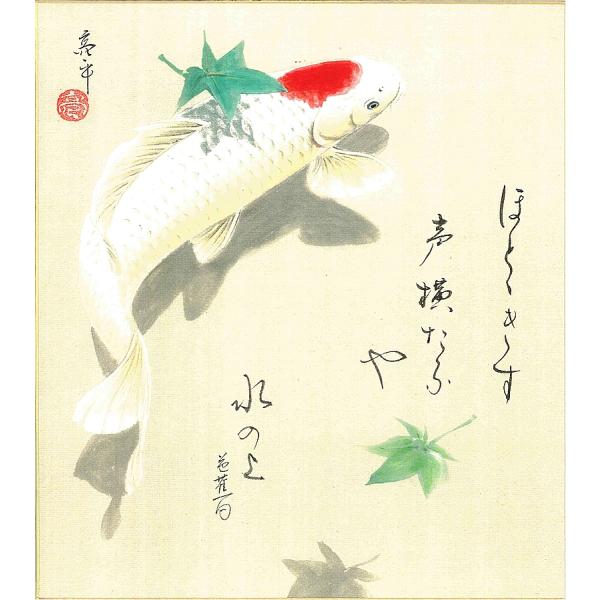 ほとゝきす
声横たふ
や
水の上
芭蕉句
亮平